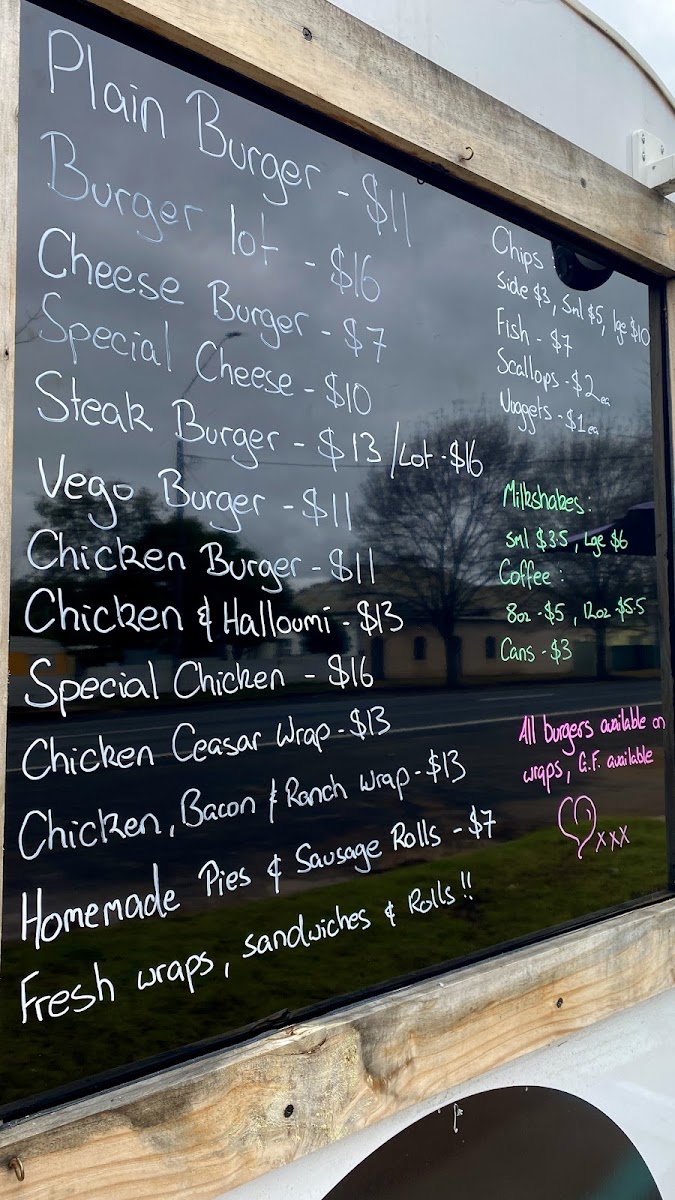 Plain Burger - $11
Burger lot - $16
Cheese Burger - $7
Special Cheese - $10
Steak Burger - $13 / Lot - $16
Vego Burger - $11
Chicken Burger - $11
Chicken & Halloumi - $13
Special Chicken - $16
Chicken Ceasar Wrap - $13
Chicken, Bacon & Ranch wrap - $13
Homemade Pies & Sausage Rolls - $7
Fresh wraps, sandwiches & Rolls!!
Chips
Side $3, Sml $5, lge $10
Fish - $7
Scallops - $2 ea
Nuggets - $1 ea
Milkshakes:
Sml $3.5, Lge $6
Coffee:
8oz - $5, 12oz $5.5
Cans - $3
All burgers available on
wraps, G.F. available
xxx